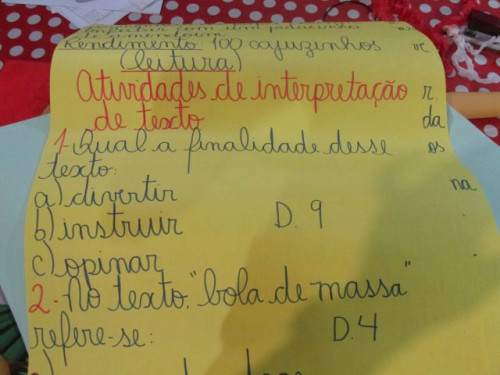 enfeitar com um pedacinho
Rendimento 100 cajuzinhos
(leitura)
Atividades de interpretação
de texto
1-Qual a finalidade desse
texto:
a) divertir
b) instruir D. 9
c) opinar
2-No texto, "bola de massa"
refere-se: D.4
r
da
os
na